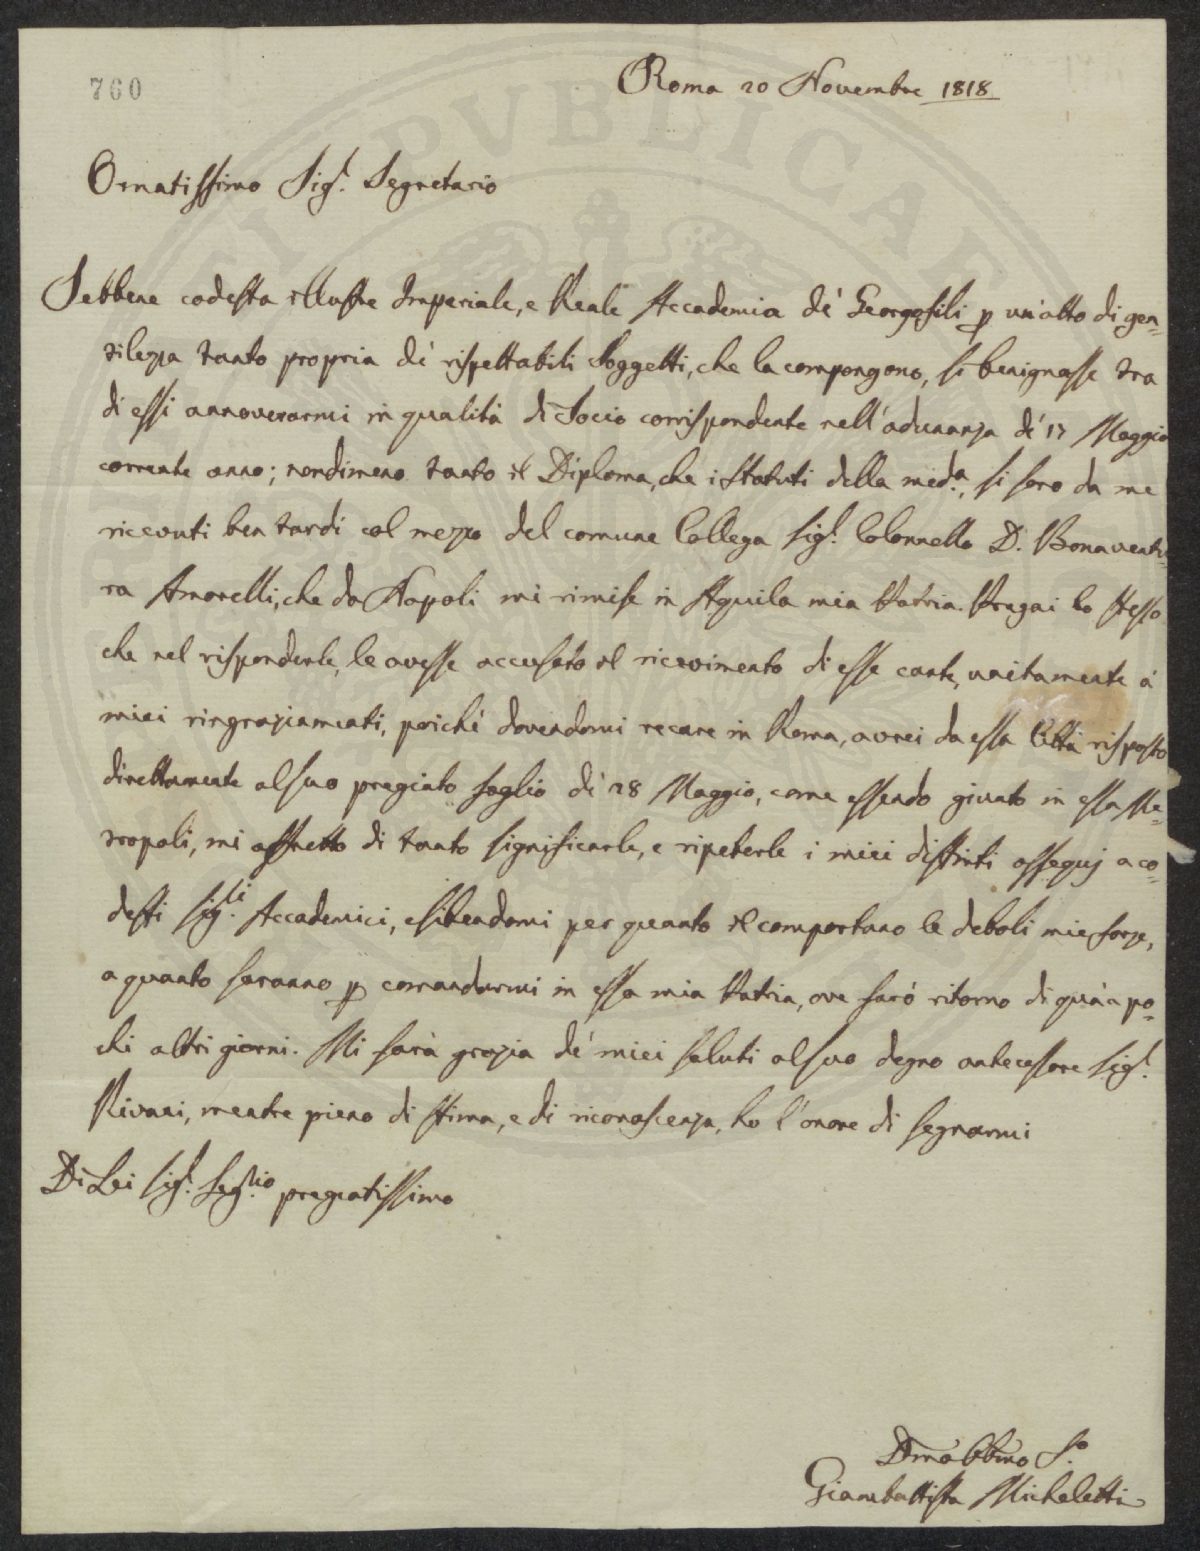 760
Roma 20 Novembre 1818
Ornatissimo Sig.r Segretario
Sebbene codesta illustre Imperiale, e Reale Accademia de' Georgofili p un'atto di gen=
tilezza tanto propria de' rispettabili Soggetti, che la compongono, si benignasse tra
di essi annoverarmi in qualità di Socio corrispondente nell'adunanza de' 17 Maggio
corrente anno; nondimeno tanto il Diploma, che i Statuti della med.a, si sono da me
ricevuti ben tardi col mezzo del comune Collega Sig.r Colonnello D. Bonaventu=
ra Amorelli, che da Napoli mi rimise in Aquila mia Patria. Pregai lo stesso
che nel risponderle, le avesse accusato il ricevimento di esse carte, unitamente a'
miei ringraziamenti, poiché dovendomi recare in Roma, avrei da essa Città risposto
direttamente al suo pregiato foglio de' 28 Maggio, come essendo giunto in essa Me=
tropoli, mi affretto di tanto significarle, e ripeterle i miei distinti ossequj a co=
desti Sig.ri Accademici, esibendomi per quanto il comportano le deboli mie forze,
a quanto saranno p comandarmi in essa mia Patria, ove farò ritorno di quà a po=
chi altri giorni. Mi farà grazia de' miei saluti al suo degno antecessore Sig.r
Rivani, mentre pieno di stima, e di riconoscenza, ho l'onore di segnarmi
Di Lei Sig.r Seg.rio pregiatissimo
Dmo Obbmo S.e
Giambattista Micheletti
PVBLICAE